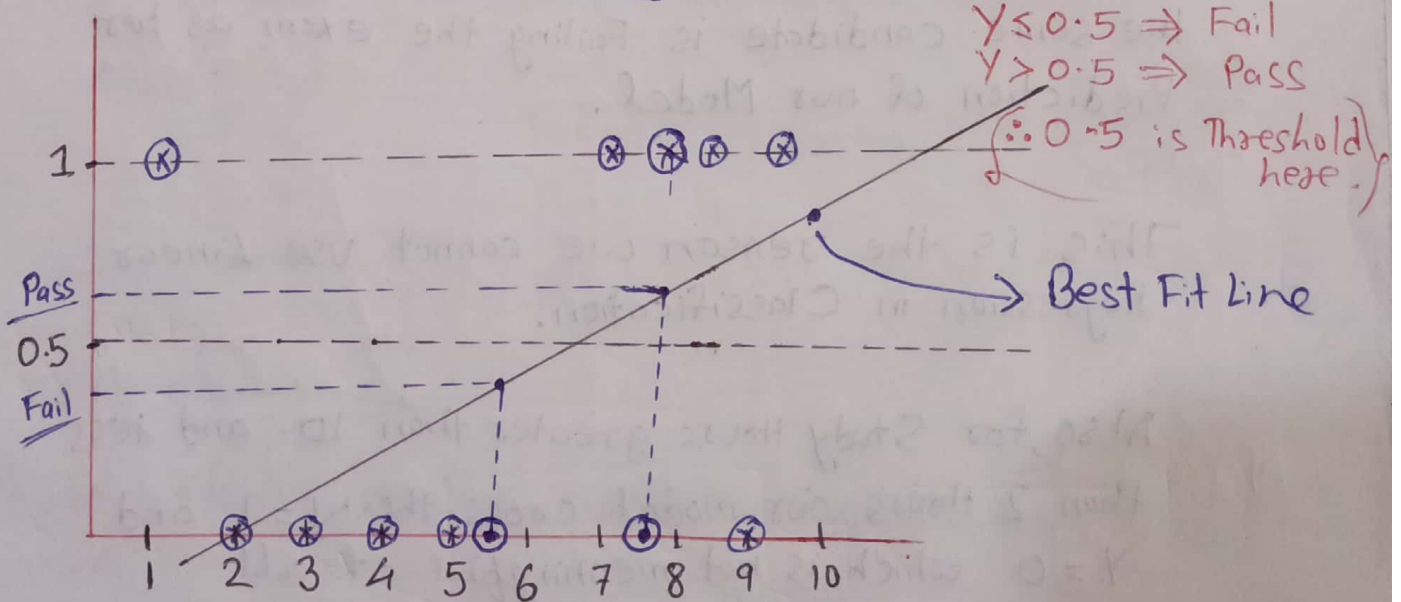 Y ≤ 0.5 ⇒ Fail
Y > 0.5 ⇒ Pass
∴ 0.5 is Threshold
here.
1
Pass
0.5
Fail
Best Fit Line
1 2 3 4 5 6 7 8 9 10